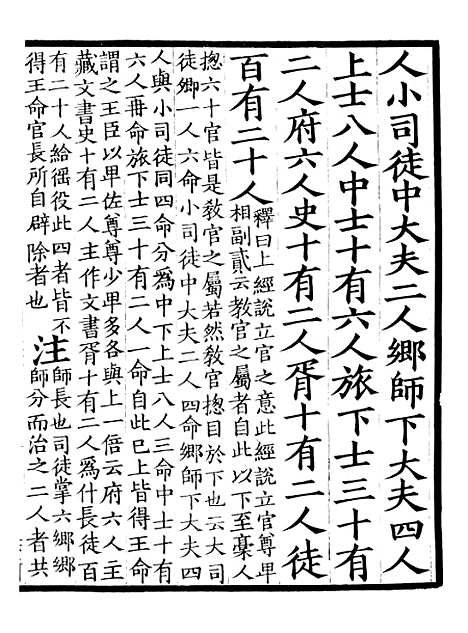 人小司徒中大夫二人鄉師下大夫四人
上士八人中士十有六人旅下士三十有
二人府六人史十有二人胥十有二人徒
百有二十人
釋曰上經說立官之意此經說立官尊卑
相副貳云教官之屬者自此以下至稾人
揔六十官皆是敎官之屬若然敎官揔目於下也云大司
徒卿一人六命小司徒中大夫二人四命鄉師下大夫四
人與小司徒同四命分爲中下上士八人三命中士十有
六人再命旅下士三十有二人一命自此已上皆得王命
謂之王臣以卑佐尊尊少卑多各與上一倍云府六人主
藏文書史十有二人主作文書胥十有二人爲什長徒百
有二十人給徭役此四者皆不
得王命官長所自辟除者也
注
師長也司徒掌六鄉鄉
師分而治之二人者共